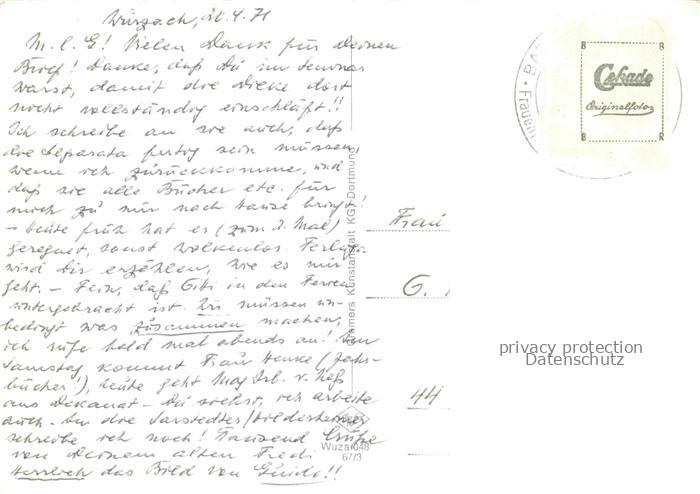 Würzach, 21.4.71
M. l. G! Vielen Dank für Deinen
Brief! Danke, daß Du im Seminar
warst, damit die Dicke dort
nicht vollständig einschläft!!
Ich schreibe an sie auch, daß
die Separata fertig sein müssen,
wenn ich zurückkomme, und
daß sie alle Bücher etc. für
mich zu mir nach Hause bringt!
– Heute früh hat es (zum 2. Mal)
geregnet, sonst wolkenlos.
wird Dir erzählen, wie es mir
geht. – Fein, daß Gibi in den Ferien
untergebracht ist. Wir müssen un-
bedingt was zusammen machen,
ich rufe bald mal abends an! Am
Samstag kommt Frau Henke (Jahr-
bücher!), heute geht Mag. v. Heß
aus Dekanat – Du siehst, ich arbeite
auch. An die Sarstedter/Hildesheimer
schreibe ich noch! Tausend Grüße
von Deinem alten Fredi
Herrlich das Bild von Guido!!
Cramers Kunstanstalt KG, Dortmund
Wuza 048
67/3
BAD
· Frauen
B B
Cekade
Originalfoto
B R
Frau
G.
44
privacy protection
Datenschutz